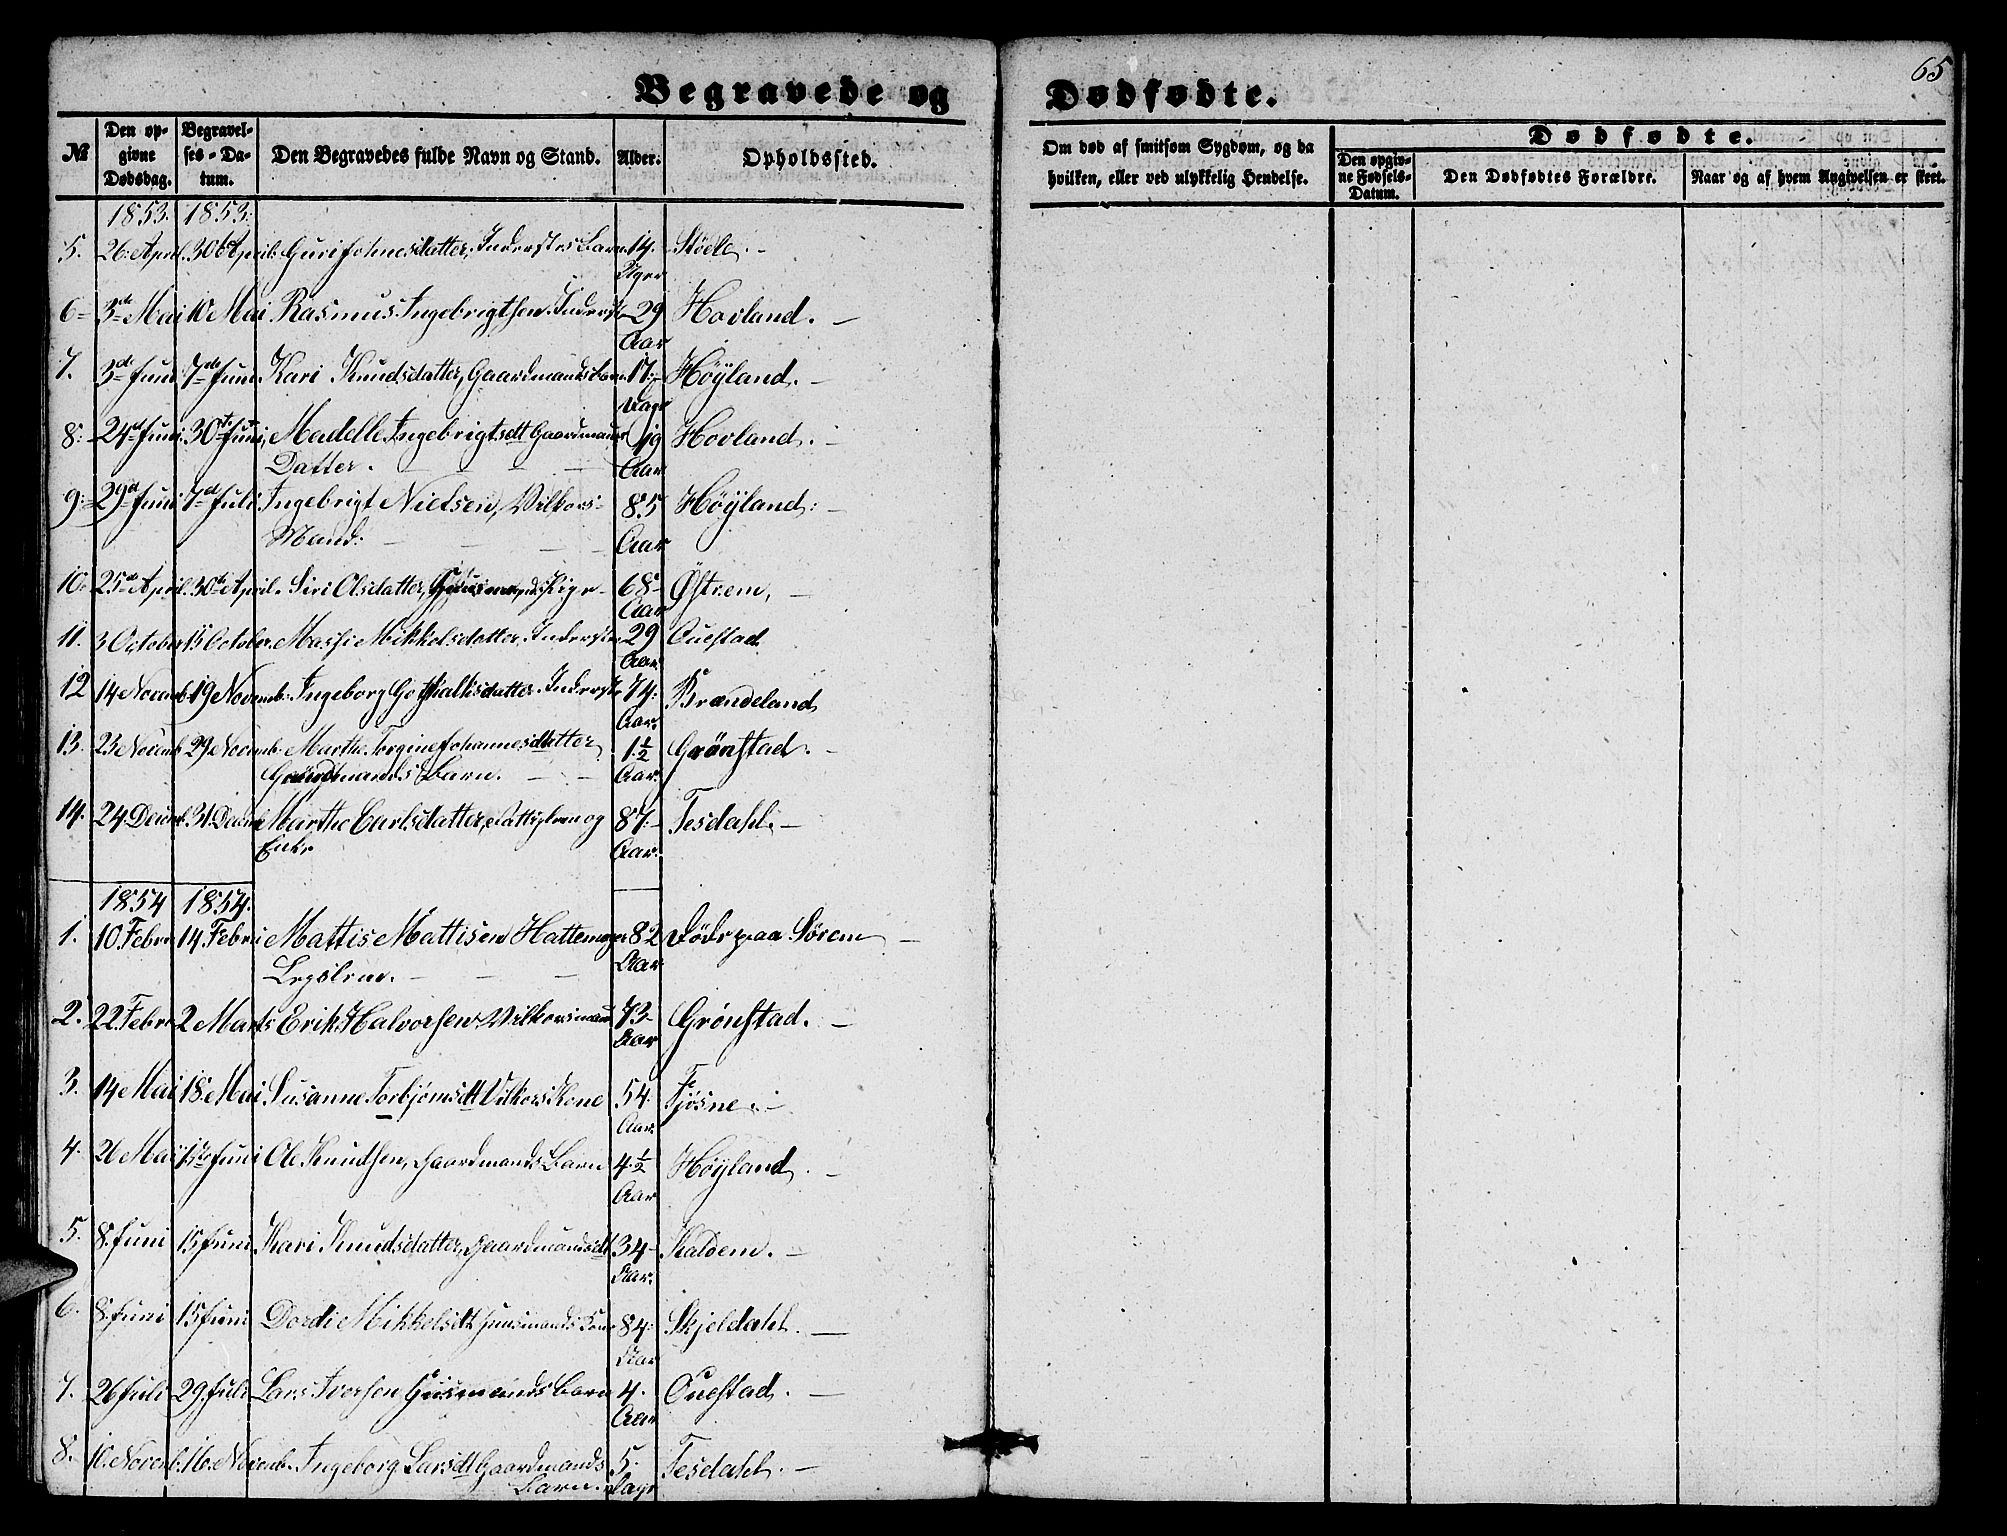 65
Begravede og Dødfødte.
№ Den opgivne Dødsdag. Begravelses-Datum. Den Begravedes fulde Navn og Stand. Alder. Opholdssted. Om død af smitsom Sygdom, og da hvilken, eller ved ulykkelig Hendelse. Dødfødte. Den opgivne Fødsels-Datum. Den Dødfødtes Forældre. Naar og af hvem Angivelsen er skeet.
1853. 1853.
5. 26. April. 30te April. Guri Johnesdatter, Inderstes Barn 14. Støele. -
Uger
6 - 3de Mai 10 Mai Rasmus Ingebrigtsen Inderst 29 Hovland. -
Aar
7. 3de Juni 7de Juni. Kari Knudsdatter, Gaardmands barn 17. Høyland. -
Dage
8. 24de Juni 30te Juni, Madelle Ingebrigtsdt Gaardmands 19 Hovland. -
Datter. - - - Aar
9. 29de Juni 7de Juli Ingebrigt Nielsen, Vilkors- 85 Høyland: -
Mand. - - - Aar
10. 25de April. 30te April. Siri Olsdatter, Huusmands Pige - 68 Østrem, -
Aar
11. 3 October 15 October. Massi Mikkelsdatter. Inderste 29 Ouestad
Aar
12 14 Novemb. 19 Novemb. Ingeborg Gothalksdatter. Inderste 74. Brandeland
Aar.
13. 23 Novemb 29. Novemb. Marthe Torgine Johannesdatter, 1 1/2 Grönstad. -
Gaardmands Barn. - - Aar.
14. 24. Decemb. 31. Decemb Marthe Carlsdatter, Fattiglem og 87. - Tesdahl. -
Enke Aar.
1854 1854.
1. 10. Febr. 14 Febr. Mattis Mattisen Hattemager 82 Døde paa Sørem -
Legslem. - - - Aar
2. 22. Febr. 2 Marts Erik Halvorsen Vilkorsmand 73 - Grönstad. -
Aar
3. 14 Mai 18. Mai Susanne Torbjørnsdt Vilkors Kone 54. Fjøsne. -
Aar.
4. 26 Mai 1ste Juni Ole Knudsen, Gaardmands Barn 4 1/2 Høyland. -
Aar
5. 8. Juni 15 Juni. Kari Knudsdatter, Gaardmandsdt 34 - Kaldem. -
Aar.
6. 8. Juni 15 Juni Dordi Mikkelsdt Huusmands Kone 84. Skjeldahl. -
Aar
7. 26 Juli 29. Juli Lars Iversen Huusmands Barn 4. Ouestad. -
Aar
8. 10. Novemb. 16. Novemb. Ingeborg Larsdt Gaardmands 5. Tesdahl. -
Barn. Dage